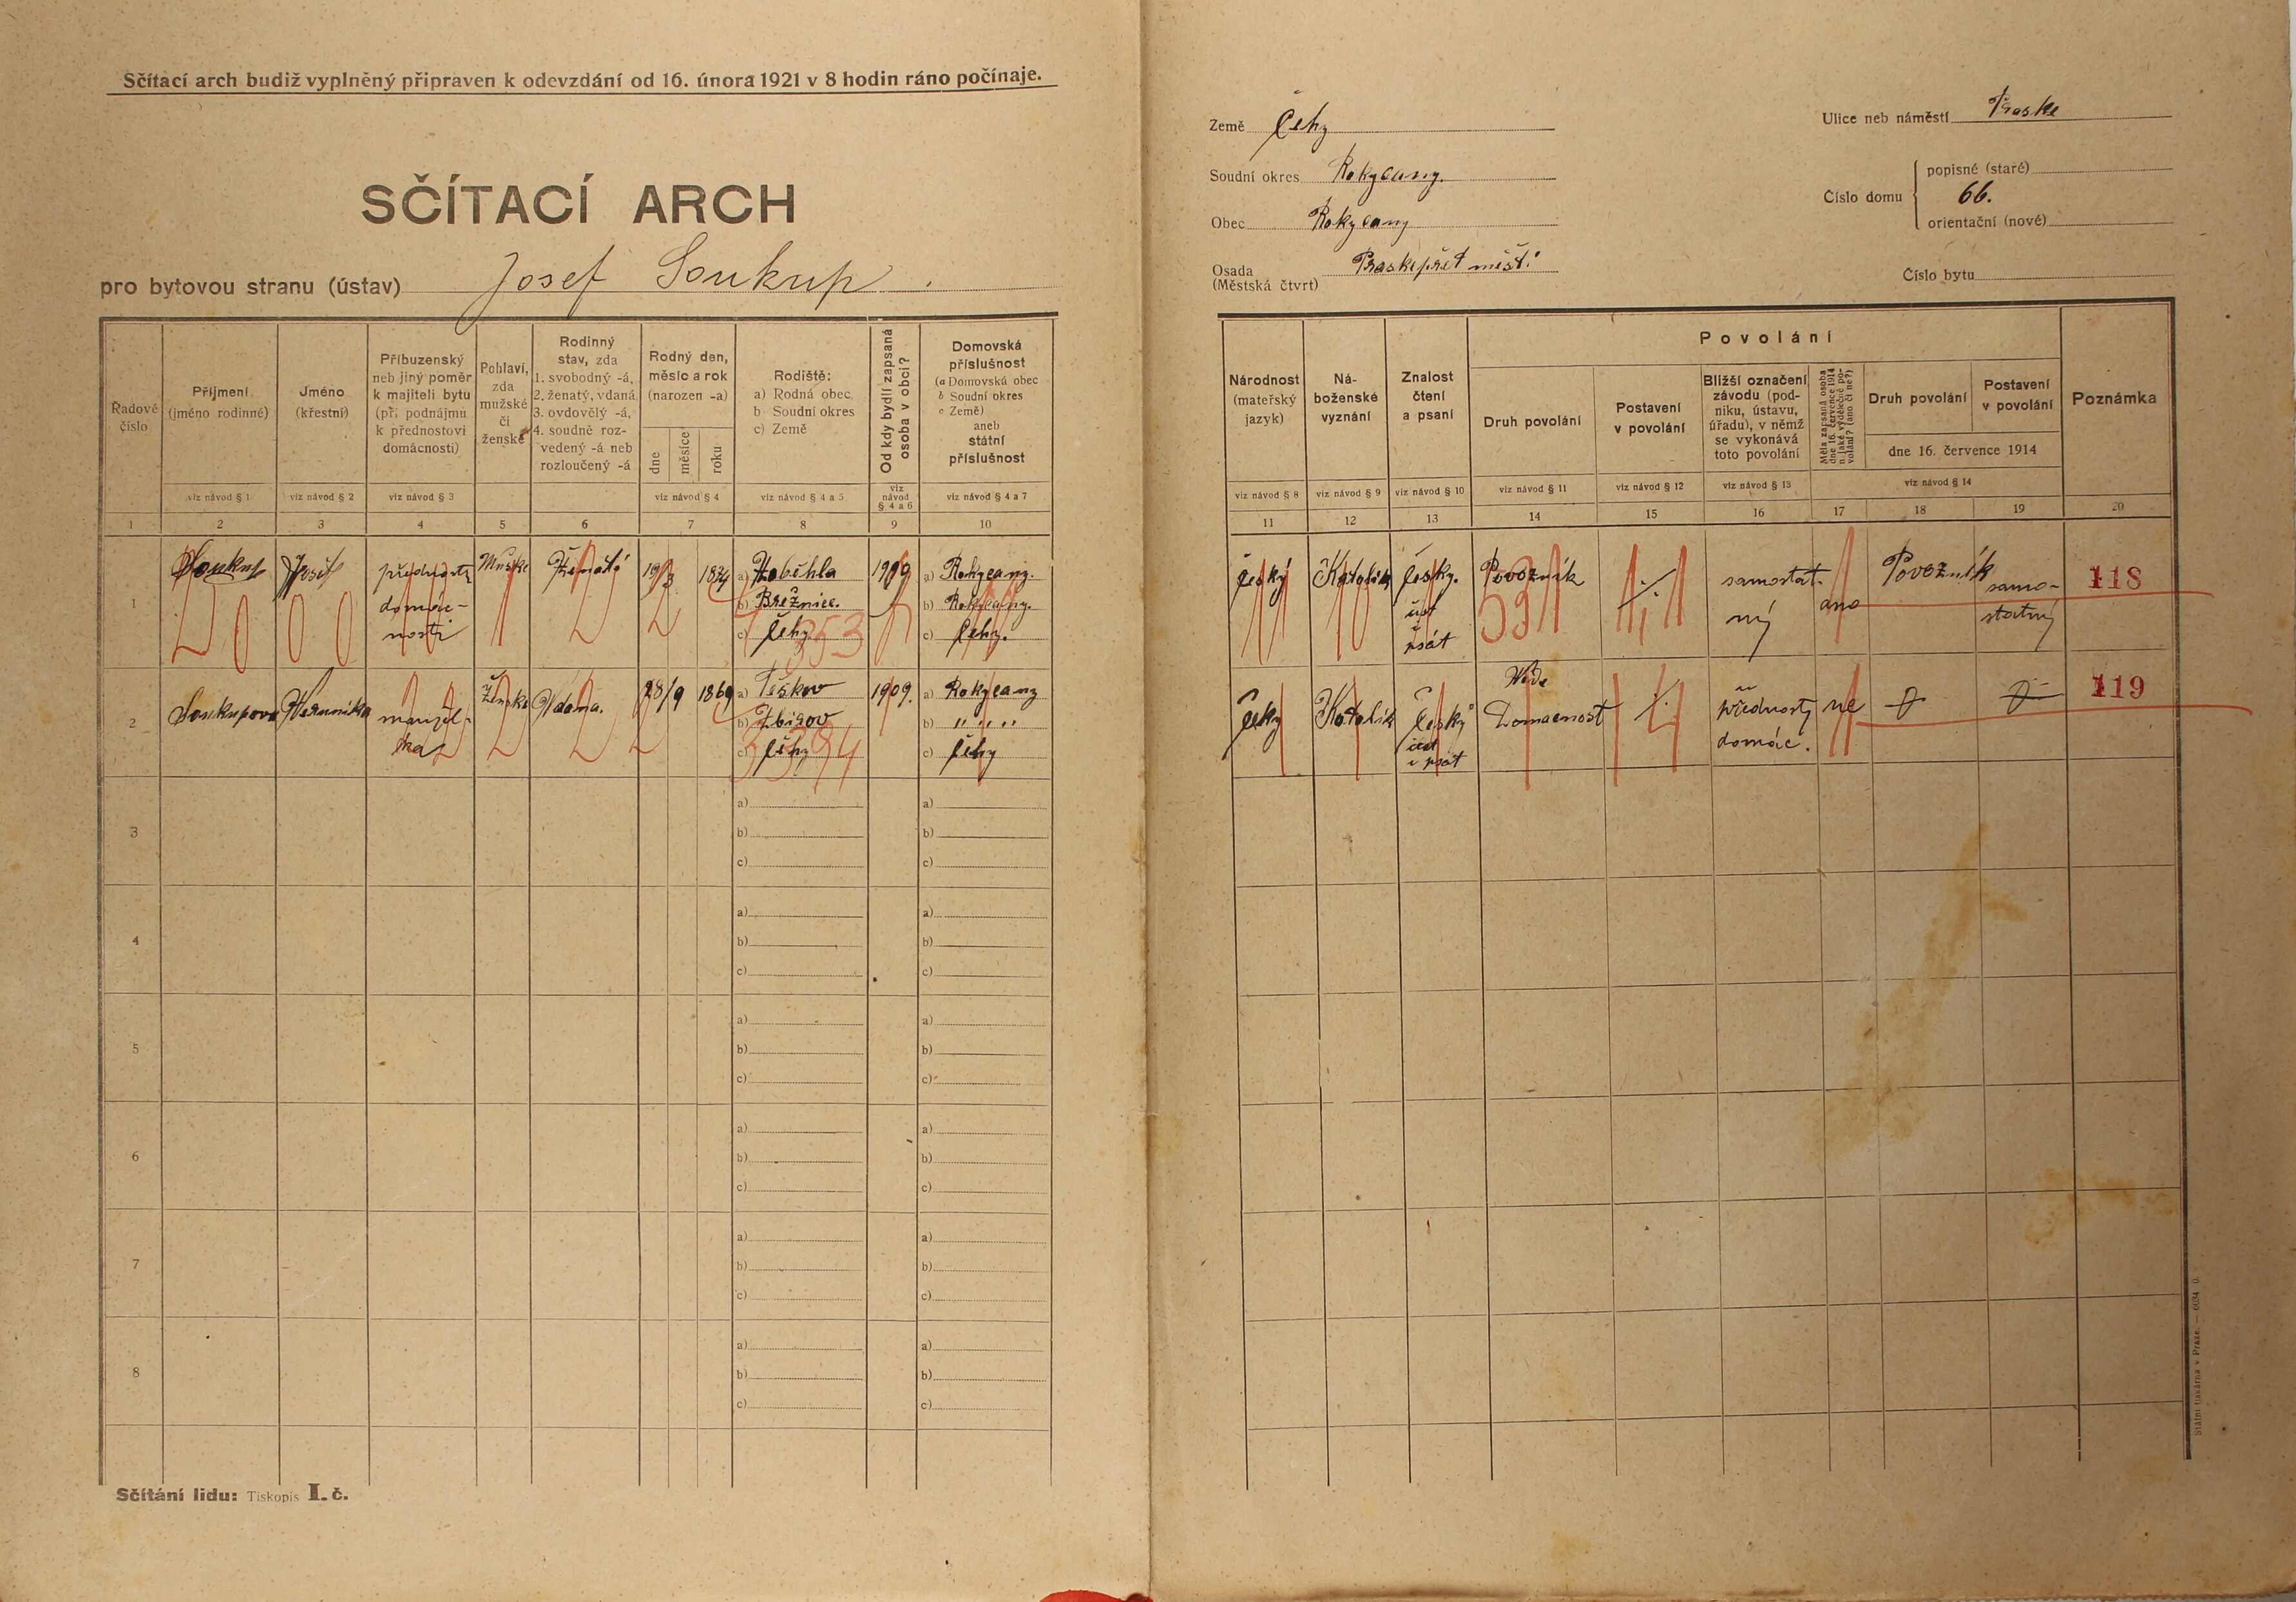 Sčítací arch budiž vyplněný připraven k odevzdání od 16. února 1921 v 8 hodin ráno počínaje.
SČÍTACÍ ARCH
pro bytovou stranu (ústav) Josef Soukup.
Země Čehy
Soudní okres Rokycany.
Obec Rokycany
Osada
(Městská čtvrt)
Ulice neb náměstí Praske
Číslo domu
popisné (staré)
66.
orientační (nové)
Číslo bytu
Řadové
číslo
Příjmení
(jméno rodinné)
viz návod § 1
Jméno
(křestní)
viz návod § 2
Příbuzenský
neb jiný poměr
k majiteli bytu
(při podnájmu
k přednostovi
domácnosti)
viz návod § 3
Pohlaví,
zda
mužské
či
ženské
Rodinný
stav, zda
1. svobodný -á,
2. ženatý, vdaná
3. ovdovělý -á,
4. soudně roz-
vedený -á neb
rozloučený -á
Rodný den,
měsíc a rok
(narozen -a)
dne
měsíce
roku
viz návod § 4
Rodiště:
a) Rodná obec
b Soudní okres
c) Země
viz návod § 4 a 5
Od kdy bydlí zapsaná
osoba v obci?
viz
návod
§ 4 a 6
Domovská
příslušnost
(a Domovská obec
b Soudní okres
c Země)
aneb
státní
příslušnost
viz návod § 4 a 7
1 2 3 4 5 6 7 8 9 10
Národnost
(mateřský
jazyk)
viz návod § 8
Ná-
boženské
vyznání
viz návod § 9
Znalost
čtení
a psaní
viz návod § 10
Povolání
Druh povolání
viz návod § 11
Postavení
v povolání
viz návod § 12
Bližší označení
závodu (pod-
niku, ústavu,
úřadu), v němž
se vykonává
toto povolání
viz návod § 13
Měla zapsaná osoba
dne 16. července 1914
n. jaké výdělečné po-
volání? (ano či ne?)
Druh povolání
Postavení
v povolání
dne 16. července 1914
viz návod § 14
Poznámka
11 12 13 14 15 16 17 18 19 20
1
Soukup
Josef
přednosta
domác-
nosti
Mužske
19/3
a)
b) Březnice.
c) Čehy
353
1909
a) Rokycany.
b) Rokycany.
c) Čehy.
český
Katolík
česky.
čist
i
psát
Povozník
531
samostat-
ný
ano
Povozník
samo-
statný
118
2
Soukupova
manžel-
ka
Ženske
Wdana.
28/9
1869
a) Těškov
b) Zbirov
c) Čehy
1909.
a) Rokycany
b) " " " "
c) Čehy
česky
Katolík
český
čist
i psát
Wede
Domacnost
přednosty
domác.
ne
119
3
a)
b)
c)
a)
b)
c)
4
a)
b)
c)
a)
b)
c)
5
a)
b)
c)
a)
b)
c)
6
a)
b)
c)
a)
b)
c)
7
a)
b)
c)
a)
b)
c)
8
a)
b)
c)
a)
b)
c)
Sčítání lidu: Tiskopis I. č.
Státní tiskárna v Praze. — 6034 ú.